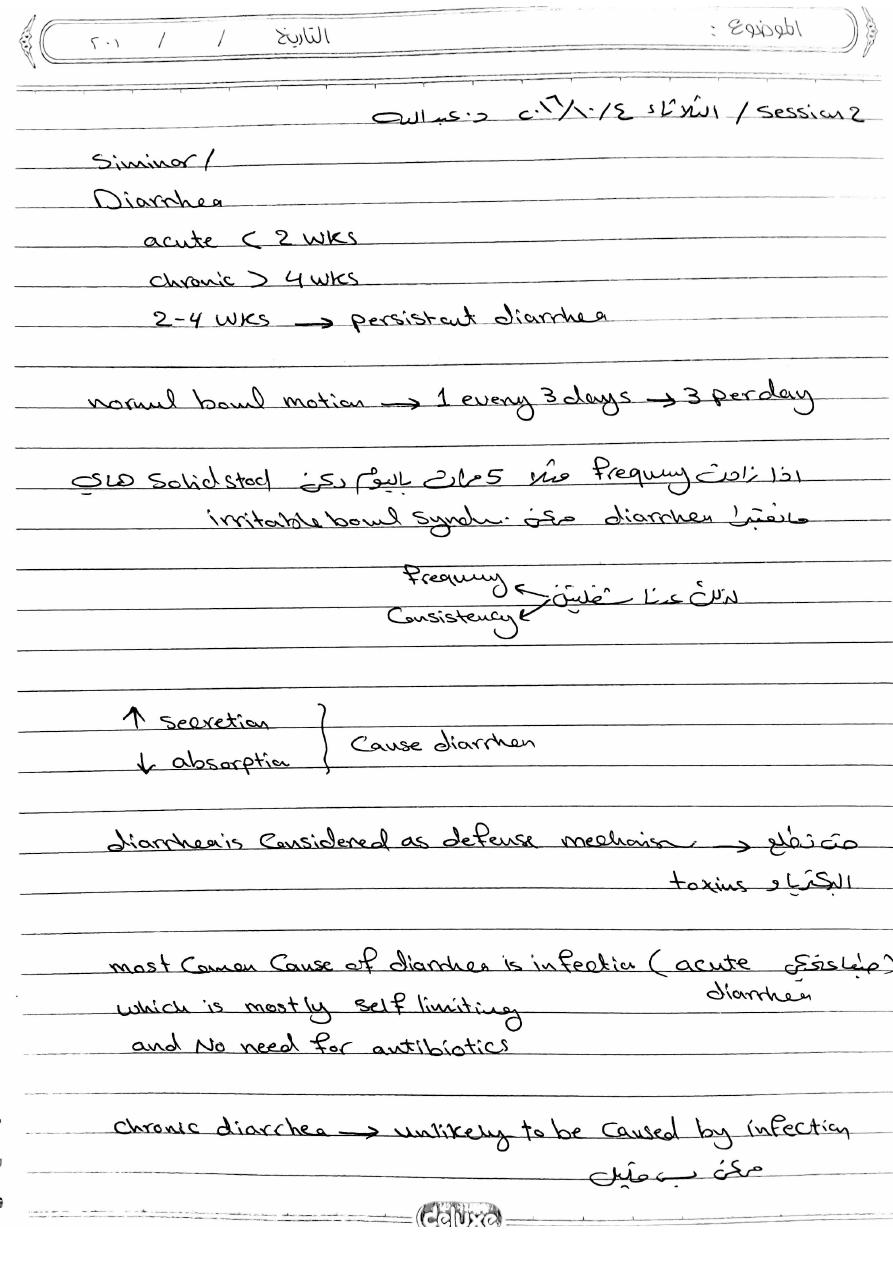 الموضوع : التاريخ / / ٢٠١
Session 2 / الثلاثاء ٢٠١٦/١٠/٤ د. عبدالله
Siminor /
Diarrhea
acute < 2 wks
chronic > 4 wks
2-4 wks → persistant diarrhea
normal bowl motion → 1 every 3 days → 3 per day
اذا زادت frequncy مثلا 5 مرات باليوم لكن Solid stool هاي
مانعتبرا diarrhea ممكن irritable bowl syndr.
frequncy
لذلك عنا شغلتين
Consistency
↑ secretion
↓ absorption
Cause diarrhea
diarrhea is Considered as defense mechaism →
البكتيريا و toxins
most Common Cause of diarrhea is infection ( acute
diarrhea
which is mostly self limiting
and No need for antibiotics
chronic diarrhea → unlikely to be caused by infection
ممكن بس قليل
deluxe